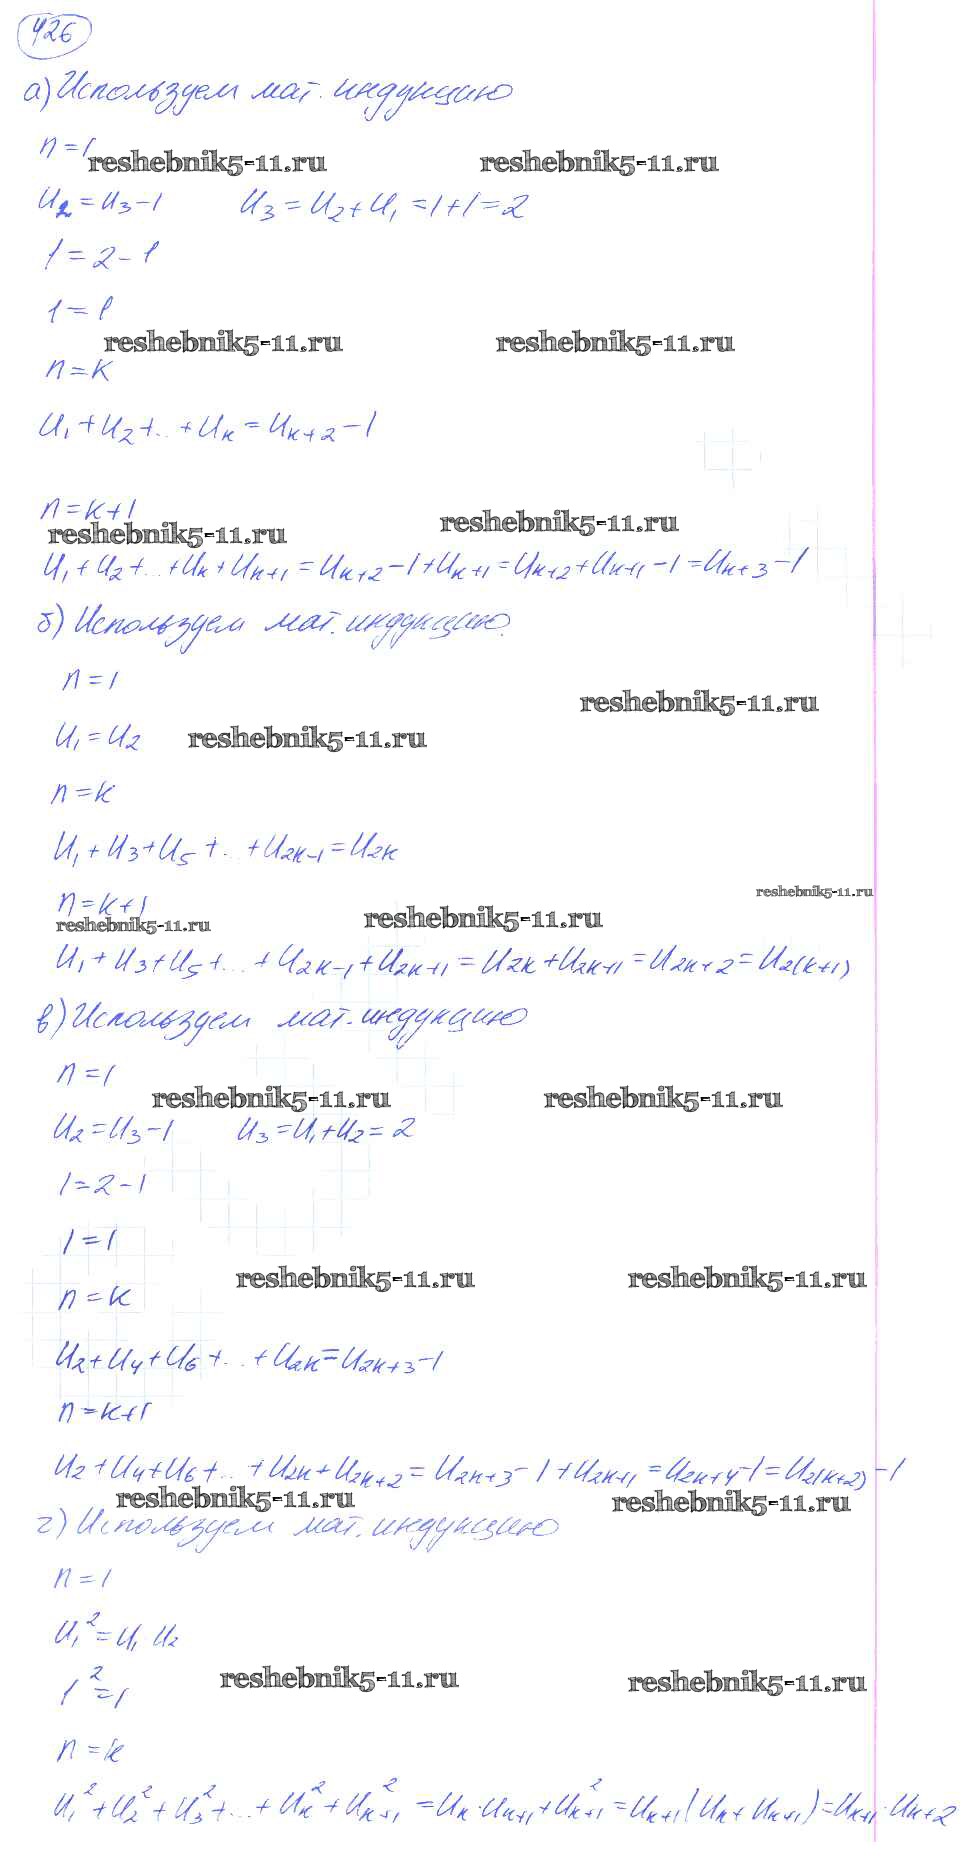 426
а) Используем мат. индукцию
n=1
reshebnik5-11.ru reshebnik5-11.ru
U₂=U₃-1 U₃=U₂+U₁=1+1=2
1=2-1
1=1
reshebnik5-11.ru reshebnik5-11.ru
n=k
U₁+U₂+...+Uₖ=Uₖ₊₂-1
n=k+1
reshebnik5-11.ru reshebnik5-11.ru
U₁+U₂+...+Uₖ+Uₖ₊₁=Uₖ₊₂-1+Uₖ₊₁=Uₖ₊₂+Uₖ₊₁-1=Uₖ₊₃-1
б) Используем мат. индукцию.
n=1
reshebnik5-11.ru
U₁=U₂ reshebnik5-11.ru
n=k
U₁+U₃+U₅+...+U₂ₖ₋₁=U₂ₖ
reshebnik5-11.ru
n=k+1
reshebnik5-11.ru reshebnik5-11.ru
U₁+U₃+U₅+...+U₂ₖ₋₁+U₂ₖ₊₁=U₂ₖ+U₂ₖ₊₁=U₂ₖ₊₂=U₂₍ₖ₊₁₎
в) Используем мат. индукцию
n=1
reshebnik5-11.ru reshebnik5-11.ru
U₂=U₃-1 U₃=U₁+U₂=2
1=2-1
1=1
reshebnik5-11.ru reshebnik5-11.ru
n=k
U₂+U₄+U₆+...+U₂ₖ=U₂ₖ₊₃-1
n=k+1
U₂+U₄+U₆+...+U₂ₖ+U₂ₖ₊₂=U₂ₖ₊₃-1+U₂ₖ₊₁=U₂ₖ₊₄-1=U₂₍ₖ₊₂₎-1
reshebnik5-11.ru reshebnik5-11.ru
г) Используем мат. индукцию
n=1
U₁²=U₁U₂
1²=1
reshebnik5-11.ru reshebnik5-11.ru
n=k
U₁²+U₂²+U₃²+...+Uₖ²+Uₖ₊₁²=Uₖ·Uₖ₊₁+Uₖ₊₁²=Uₖ₊₁(Uₖ+Uₖ₊₁)=Uₖ₊₁·Uₖ₊₂